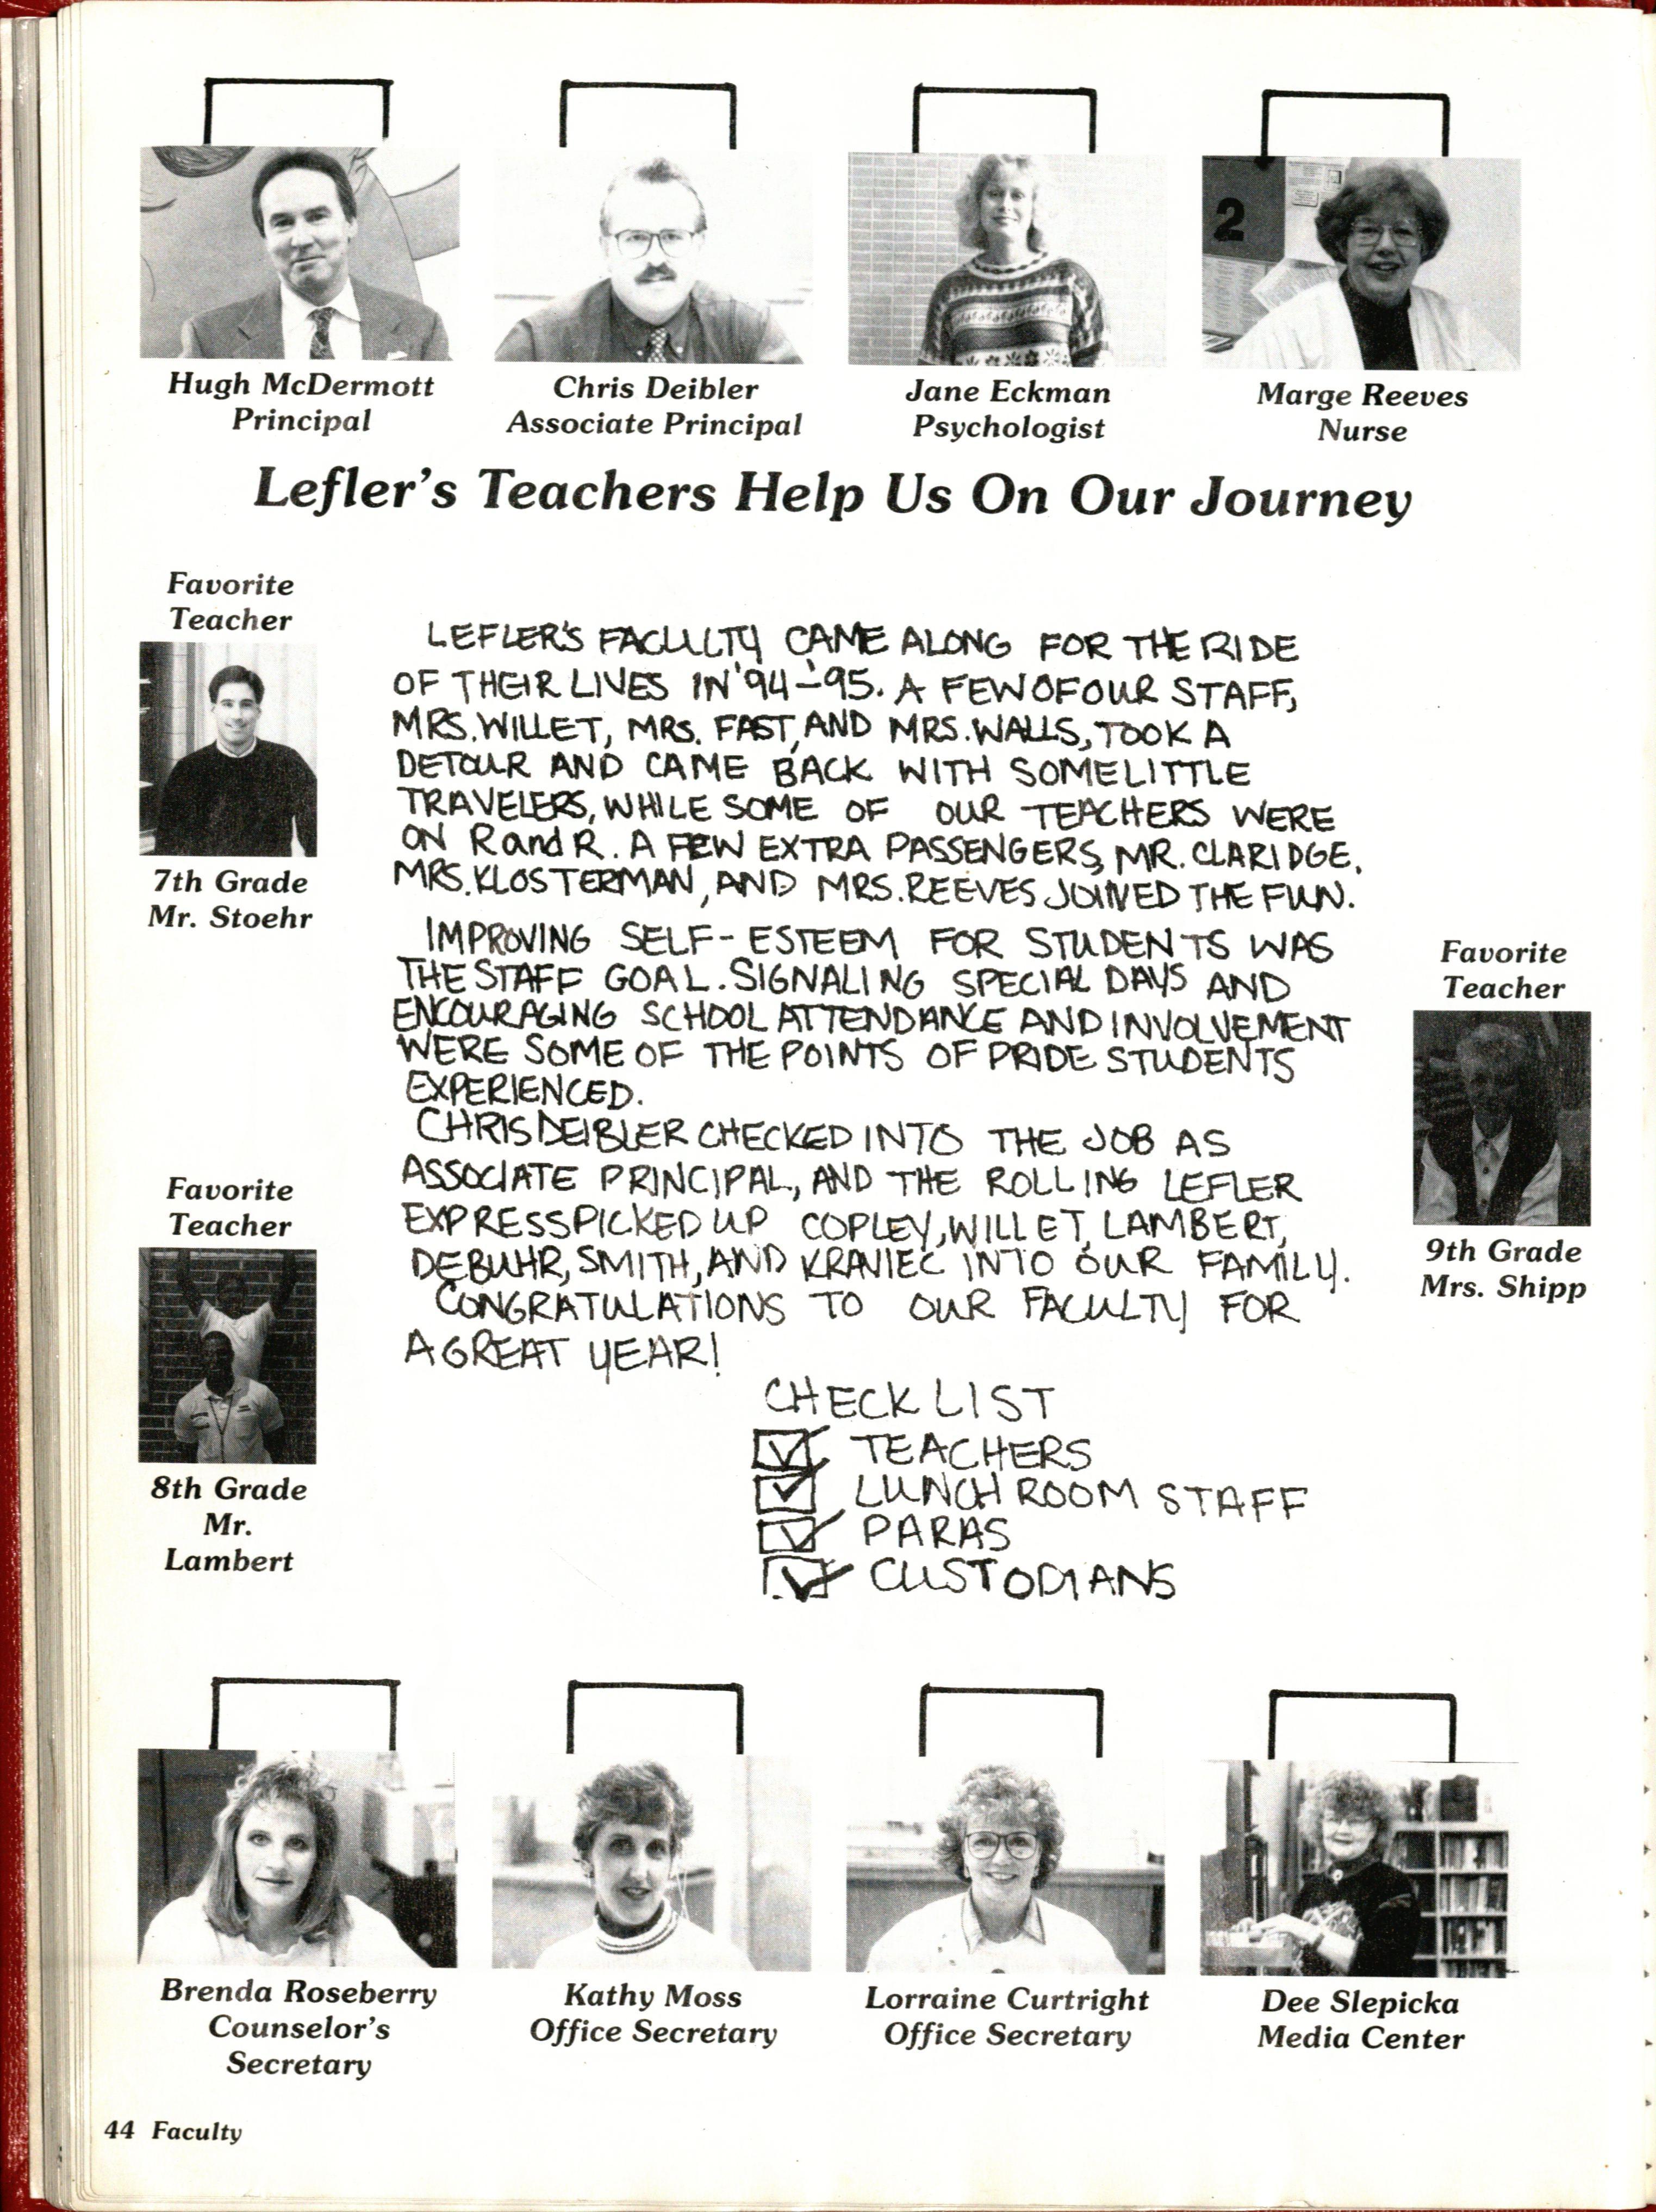 2
Hugh McDermott
Principal
Chris Deibler
Associate Principal
Jane Eckman
Psychologist
Marge Reeves
Nurse
Lefler's Teachers Help Us On Our Journey
Favorite
Teacher
7th Grade
Mr. Stoehr
Favorite
Teacher
8th Grade
Mr.
Lambert
LEFLER'S FACULTY CAME ALONG FOR THE RIDE
OF THEIR LIVES IN '94-'95. A FEW OF OUR STAFF,
MRS. WILLET, MRS. FAST, AND MRS. WALLS, TOOK A
DETOUR AND CAME BACK WITH SOME LITTLE
TRAVELERS, WHILE SOME OF OUR TEACHERS WERE
ON R and R. A FEW EXTRA PASSENGERS, MR. CLARIDGE,
MRS. KLOSTERMAN, AND MRS. REEVES JOINED THE FUN.
IMPROVING SELF-ESTEEM FOR STUDENTS WAS
THE STAFF GOAL. SIGNALING SPECIAL DAYS AND
ENCOURAGING SCHOOL ATTENDANCE AND INVOLVEMENT
WERE SOME OF THE POINTS OF PRIDE STUDENTS
EXPERIENCED.
CHRIS DEIBLER CHECKED INTO THE JOB AS
ASSOCIATE PRINCIPAL, AND THE ROLLING LEFLER
EXPRESS PICKED UP COPLEY, WILLET, LAMBERT,
DEBUHR, SMITH, AND KRAVIEC INTO OUR FAMILY.
CONGRATULATIONS TO OUR FACULTY FOR
A GREAT YEAR!
CHECK LIST
TEACHERS
LUNCH ROOM STAFF
PARAS
CUSTODIANS
Favorite
Teacher
9th Grade
Mrs. Shipp
Brenda Roseberry
Counselor's
Secretary
Kathy Moss
Office Secretary
Lorraine Curtright
Office Secretary
Dee Slepicka
Media Center
44 Faculty